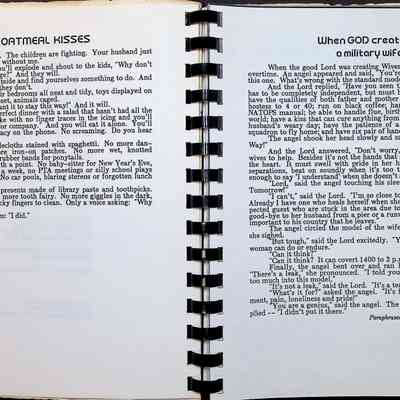 OATMEAL KISSES
The children are fighting. Your husband just
without me."
you'll explode and shout to the kids, "Why don't
age?" And they will.
tside and find yourselves to do. And
they don't.
r bedrooms all neat and tidy, toys displayed on
set, animals caged.
nt it to stay this way!" And it will.
erfect dinner with a salad that hasn't had all the
ke with no finger traces in the icing and you'll
or company." And you will eat it alone. You'll
acy on the phone. No screaming. Do you hear
lecloths stained with spaghetti. No more dan-
ore iron-on patches. No more wet, knotted
rubber bands for ponytails.
with a point. No baby-sitter for New Year's Eve,
a week, no PTA meetings or silly school plays
No car pools, blaring stereos or forgotten lunch
presents made of library paste and toothpicks.
more tooth fairy. No more giggles in the dark,
cky fingers to clean. Only a voice asking: "Why
o: "I did."
When GOD creat
a military wife
When the good Lord was creating Wives
overtime. An angel appeared and said, "You're
this one. What's wrong with the standard mode
And the Lord replied, "Have you seen t
has to be completely independent, but must b
have the qualities of both father and mother
hostess to 4 or 40; run on black coffee; han
NATOPS manual; be able to handle flue, birth
world; have a kiss that can cure anything from
husband's weary day; have the patience of a
squadron to fly home; and have six pair of hand
The angel shook her head slowly and
Way!"
And the Lord answered, "Don't worry,
wives to help. Besides it's not the hands that
the heart. It must swell with pride in her h
separations, beat on soundly when it's too t
enough to say 'I understand' when she doesn't a
"Lord," said the angel touching his slee
Tomorrow!"
"I can't," said the Lord. "I'm so close to
Already I have one who heals herself when she
pected guest who are stuck in the area due to
good-bye to her husband from a pier or a runw
important to his country that he leaves."
The angel circled the model of the wife
she sighed.
"But tough," said the Lord excitedly. "Y
woman can do or endure."
"Can it think?"
"Can it think? It can covert 1400 to 2 p.m
Finally, the angel bent over and ran
"There's a leak," she pronounced. "I told you
too much into this model."
"It's not a leak," said the Lord. "It's a tea
"What's it for?" asked the angel. "It's
ment, pain, loneliness and pride!"
"You are a genius," said the angel. The
plied -- "I didn't put it there."
Paraphrase